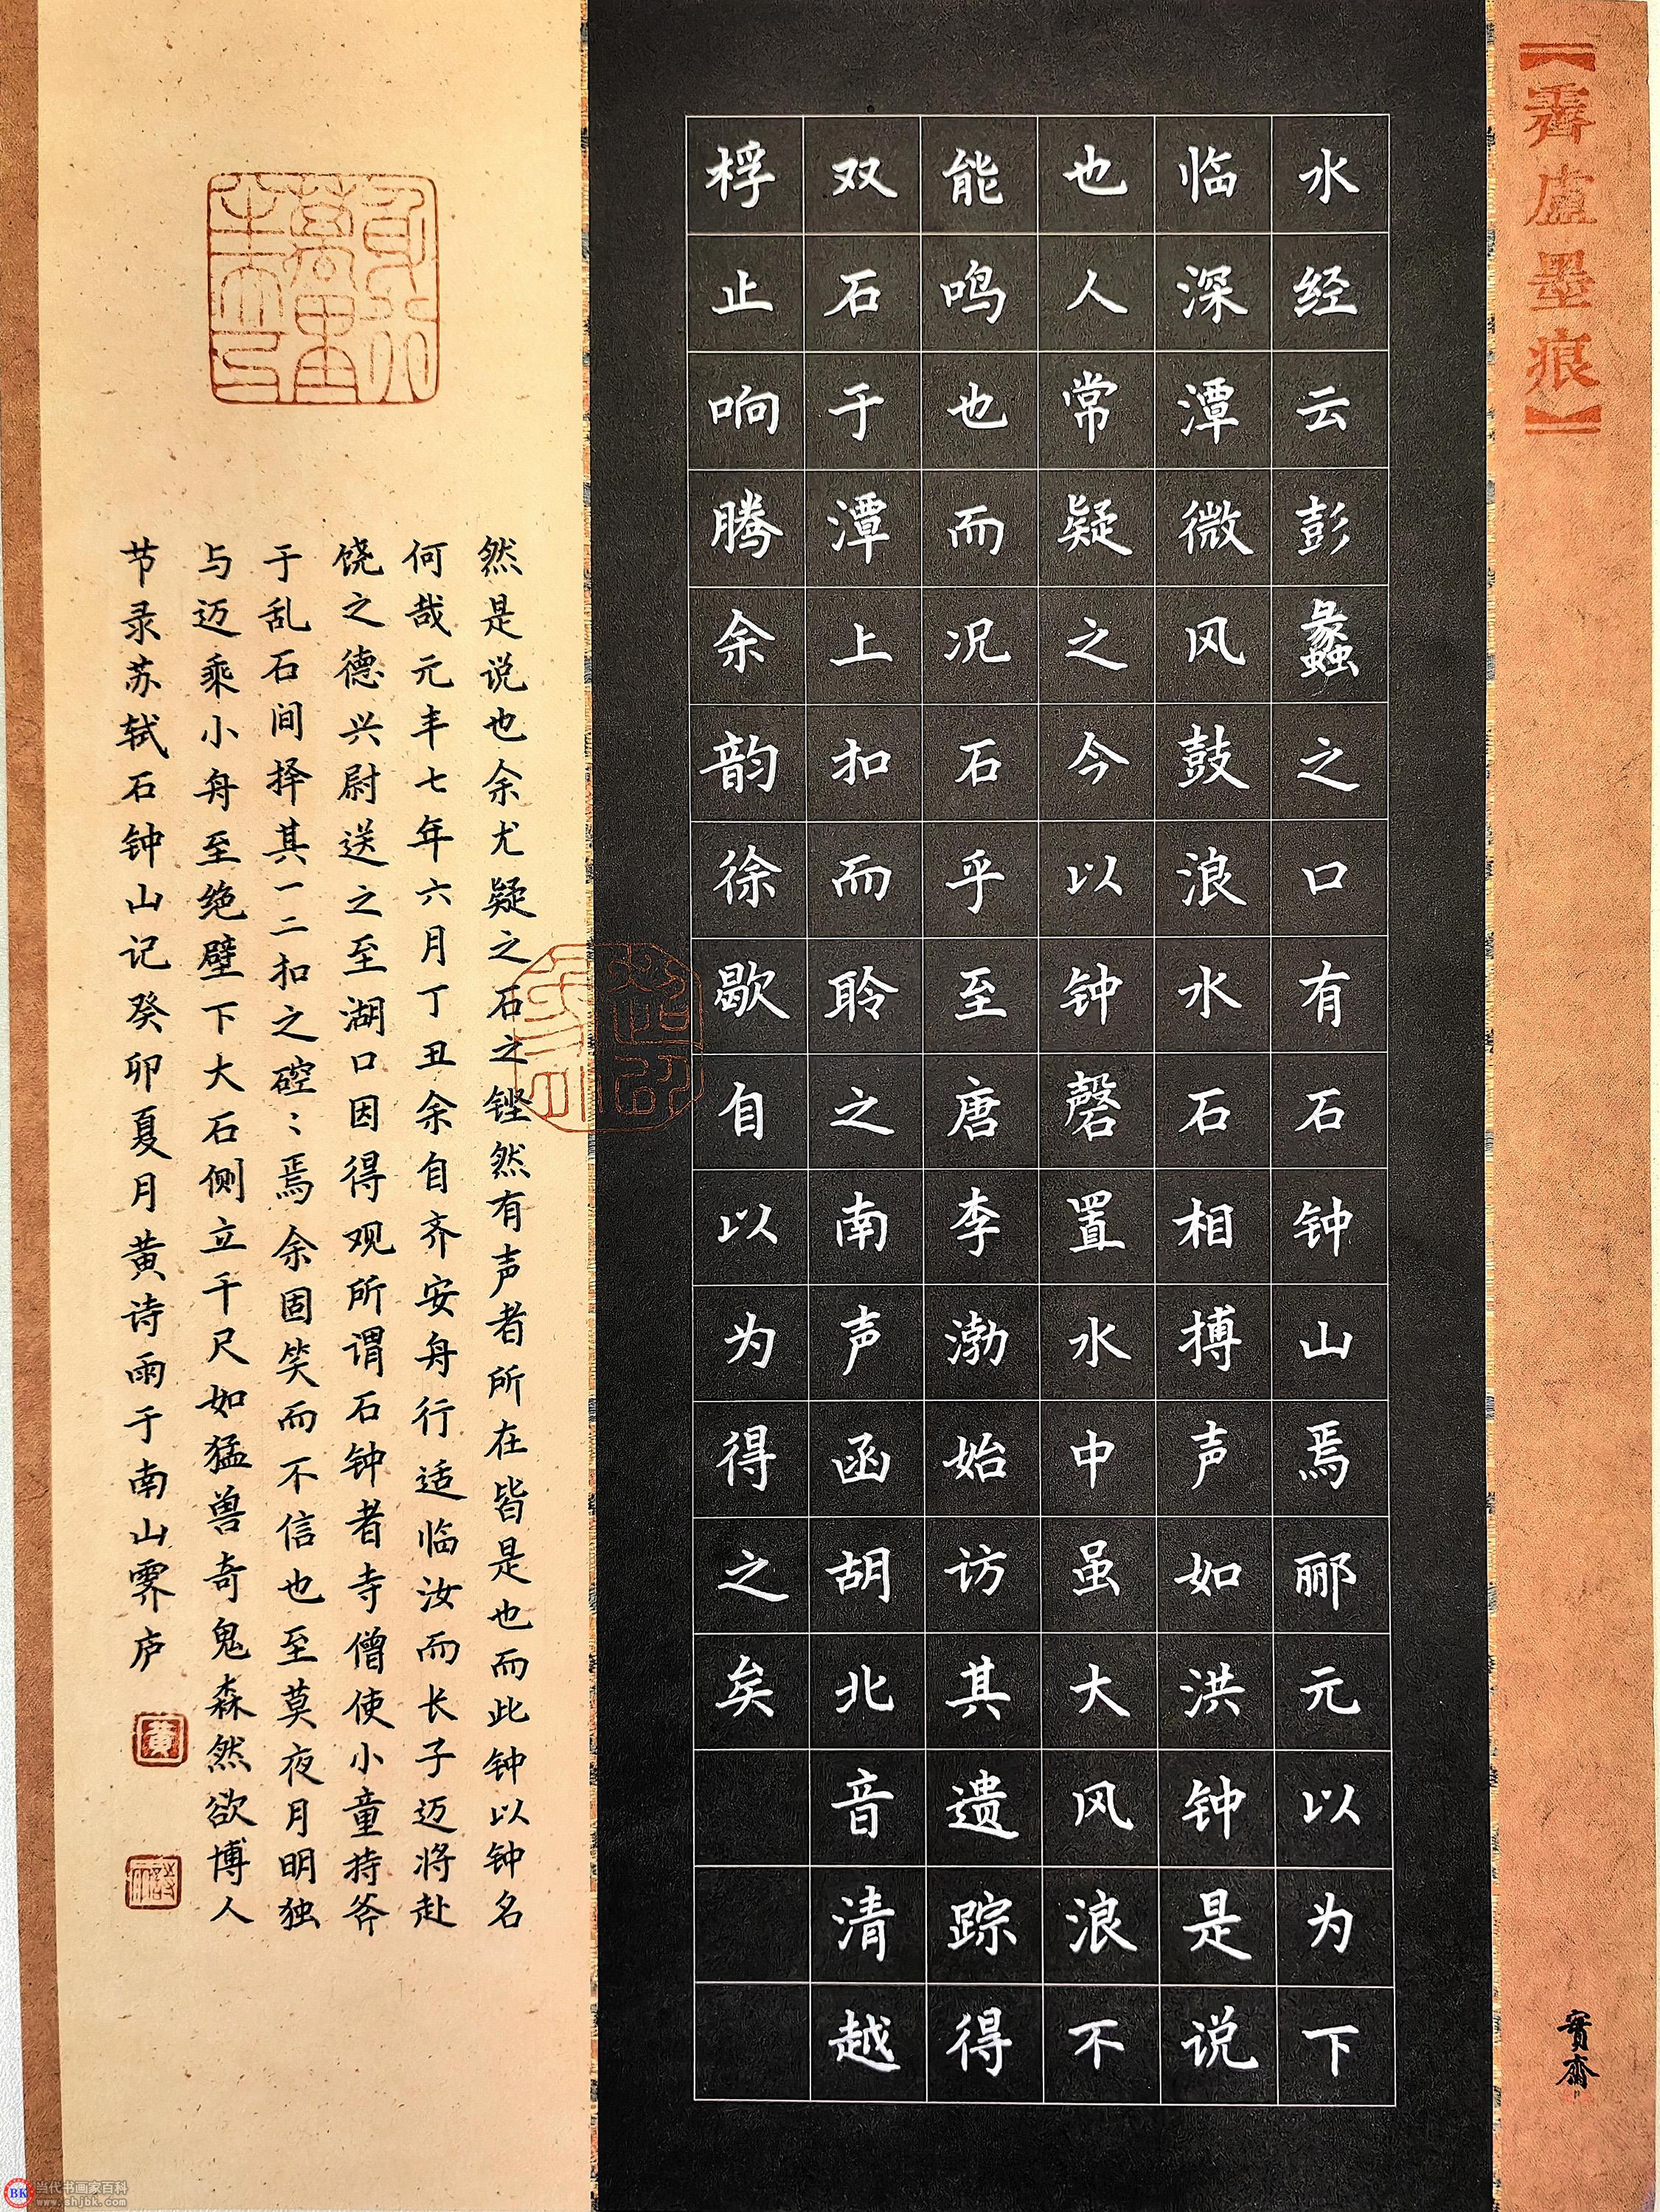 【霽廬墨痕】
實齋
水经云彭蠡之口有石钟山焉郦元以为下
临深潭微风鼓浪水石相搏声如洪钟是说
也人常疑之今以钟磬置水中虽大风浪不
能鸣也而况石乎至唐李渤始访其遗踪得
双石于潭上扣而聆之南声函胡北音清越
桴止响腾余韵徐歇自以为得之矣
然是说也余尤疑之石之铿然有声者所在皆是也而此钟以钟名
何哉元丰七年六月丁丑余自齐安舟行适临汝而长子迈将赴
饶之德兴尉送之至湖口因得观所谓石钟者寺僧使小童持斧
于乱石间择其一二扣之硿〻焉余固笑而不信也至莫夜月明独
与迈乘小舟至绝壁下大石侧立千尺如猛兽奇鬼森然欲博人
节录苏轼石钟山记癸卯夏月黄诗雨于南山霁庐
黃
BK 当代书画家百科
www.shjbk.com